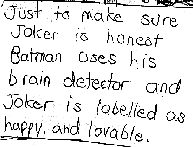 Just to make sure
Joker is honest
Batman uses his
brain detector and
Joker is labelled as
happy and lovable.